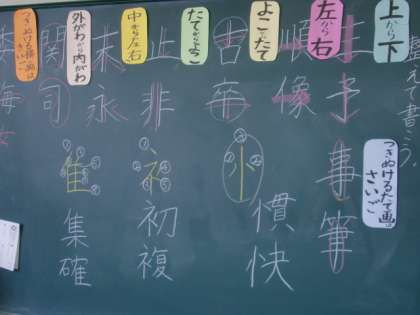 整えて書こう。
上から下
左から右
よことたて
たてからよこ
中から左右
外がわから内がわ
つきぬける横画はさいご
主
予
つきぬけるたて画はさいご
事
筆
順
像
小
慣
快
卒
止
非
ネ
初
複
末
永
隹
集
確
関
司
海
女